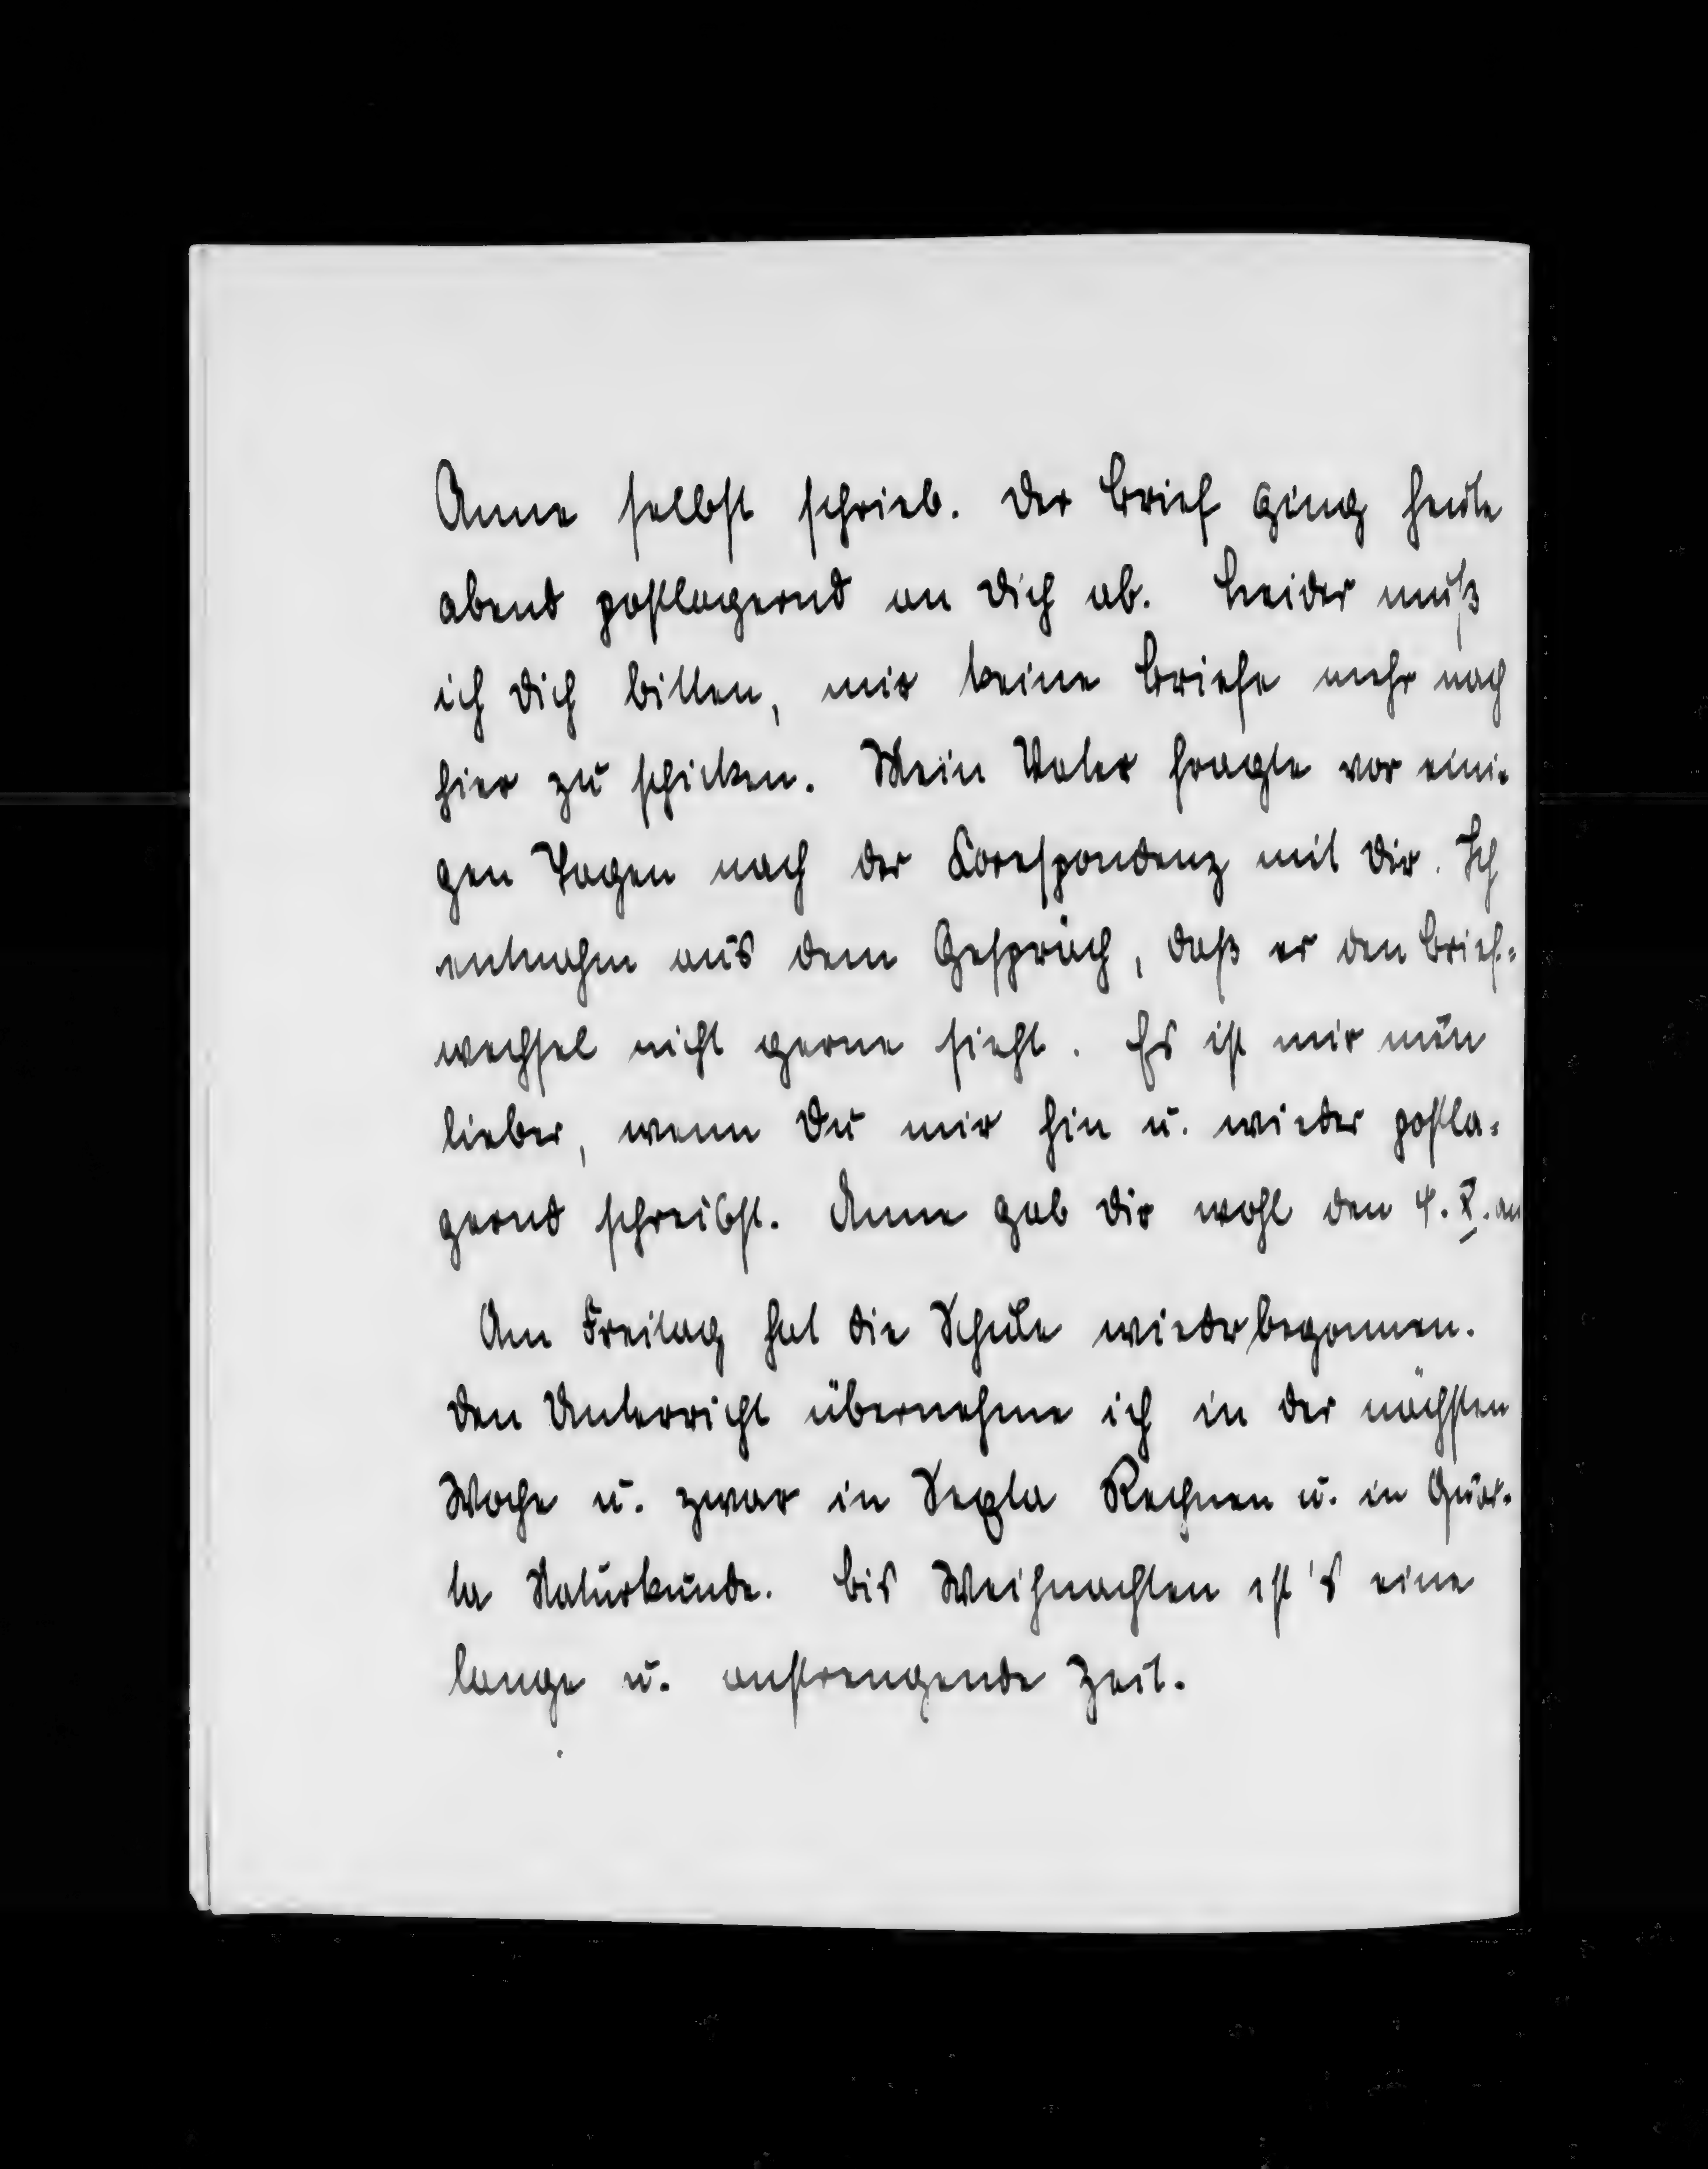 Anne selbst schrieb. Der Brief ging heute
abend postlagernd an Dich ab. Leider muß
ich Dich bitten, mir keine Briefe mehr nach
hier zu schicken. Mein Vater fragte vor eini-
gen Tagen nach der Korespondenz mit Dir. Ich
entnahm aus dem Gespräch, daß er den Brief-
wechsel nicht gerne sieht. Es ist mir nun
lieber, wenn Du mir hin u. wieder postla-
gernd schreibst. Anne gab Dir wohl den 4. X. an
Am Freitag hat die Schule wieder begonnen.
Den Unterricht übernehme ich in der nächsten
Woche u. zwar in Sexta Rechnen u. in Quar-
ta Naturkunde. Bis Weihnachten ist's eine
lange u. anstrengende Zeit.